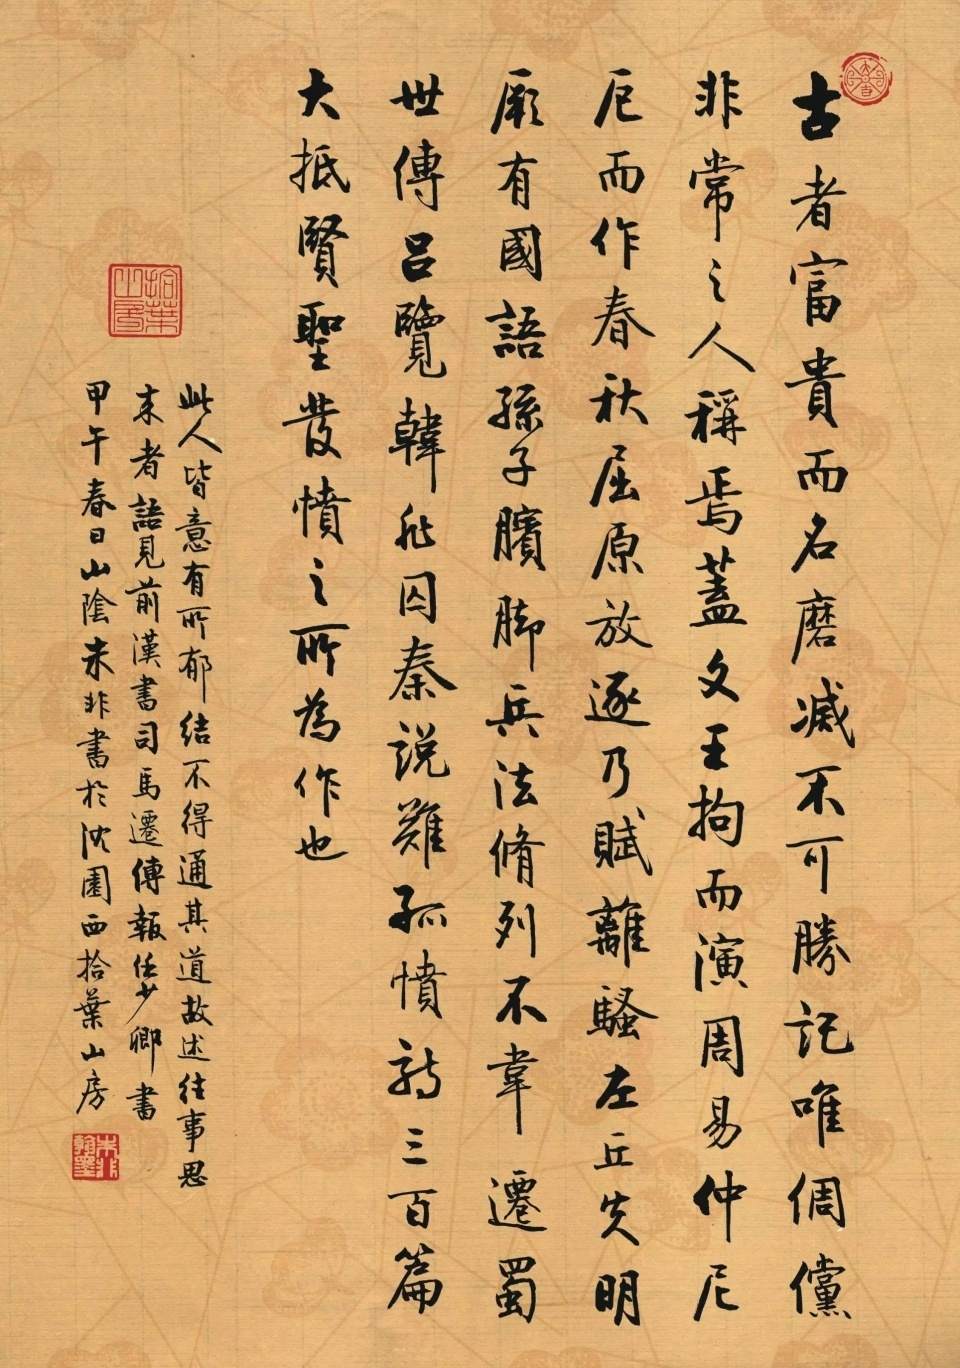 古者富貴而名磨滅不可勝記唯倜儻
非常之人稱焉蓋文王拘而演周易仲尼
厄而作春秋屈原放逐乃賦離騷左丘失明
厥有國語孫子臏脚兵法脩列不韋遷蜀
世傳呂覽韓非囚秦説難孤憤詩三百篇
大抵賢聖發憤之所為作也
此人皆意有所郁結不得通其道故述往事思
来者語見前漢書司馬遷傳報任少卿書
甲午春日山陰朱非書於沈園西拾葉山房
拾葉山房
朱非翰墨